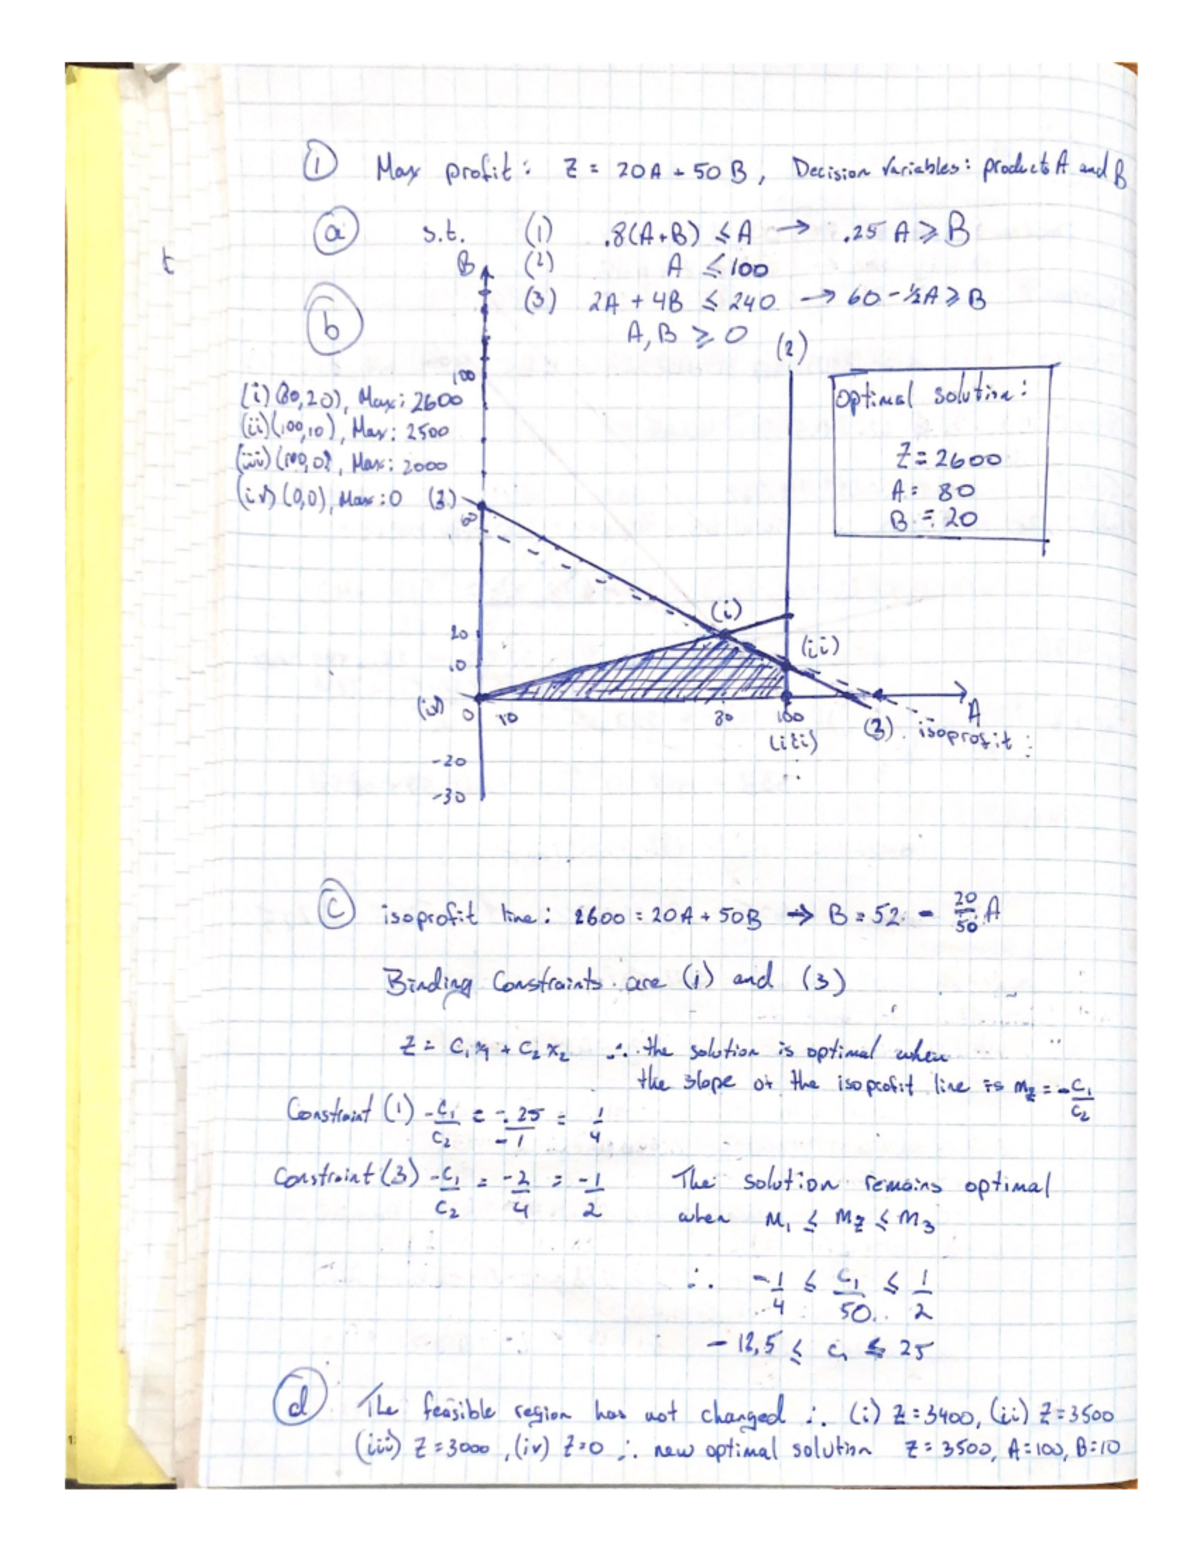 ① Max profit: Z = 20A + 50B, Decision Variables: products A and B
ⓐ s.t. (1) .8(A+B) ≤ A → .25 A ≥ B
t
B (2) A ≤ 100
(3) 2A + 4B ≤ 240 → 60 - ½A ≥ B
ⓑ A, B ≥ 0
(2)
100
(i) (80,20), Max: 2600
(ii) (100,10), Max: 2500
(iii) (100,0), Max: 2000
(iv) (0,0), Max: 0 (3)
60
Optimal solution:
Z = 2600
A = 80
B = 20
(i)
20
(ii)
10
(iv) 0 10 80 100 A
(iii) (3) isoprofit:
-20
-30
ⓒ isoprofit line: 2600 = 20A + 50B → B = 52 - 20/50 A
Binding Constraints are (1) and (3)
Z = C₁x₁ + C₂x₂ ∴ the solution is optimal when
the slope of the isoprofit line is m_z = -C₁/C₂
Constraint (1) -C₁/C₂ = -.25/-1 = 1/4
Constraint (3) -C₁/C₂ = -2/4 = -1/2 The solution remains optimal
when M₁ ≤ M_z ≤ M₃
∴ -1/4 ≤ C₁/50 ≤ 1/2
-12,5 ≤ C₁ ≤ 25
ⓓ The feasible region has not changed ∴ (i) Z = 3400, (ii) Z = 3500
(iii) Z = 3000, (iv) Z = 0 ∴ new optimal solution Z = 3500, A = 100, B = 10